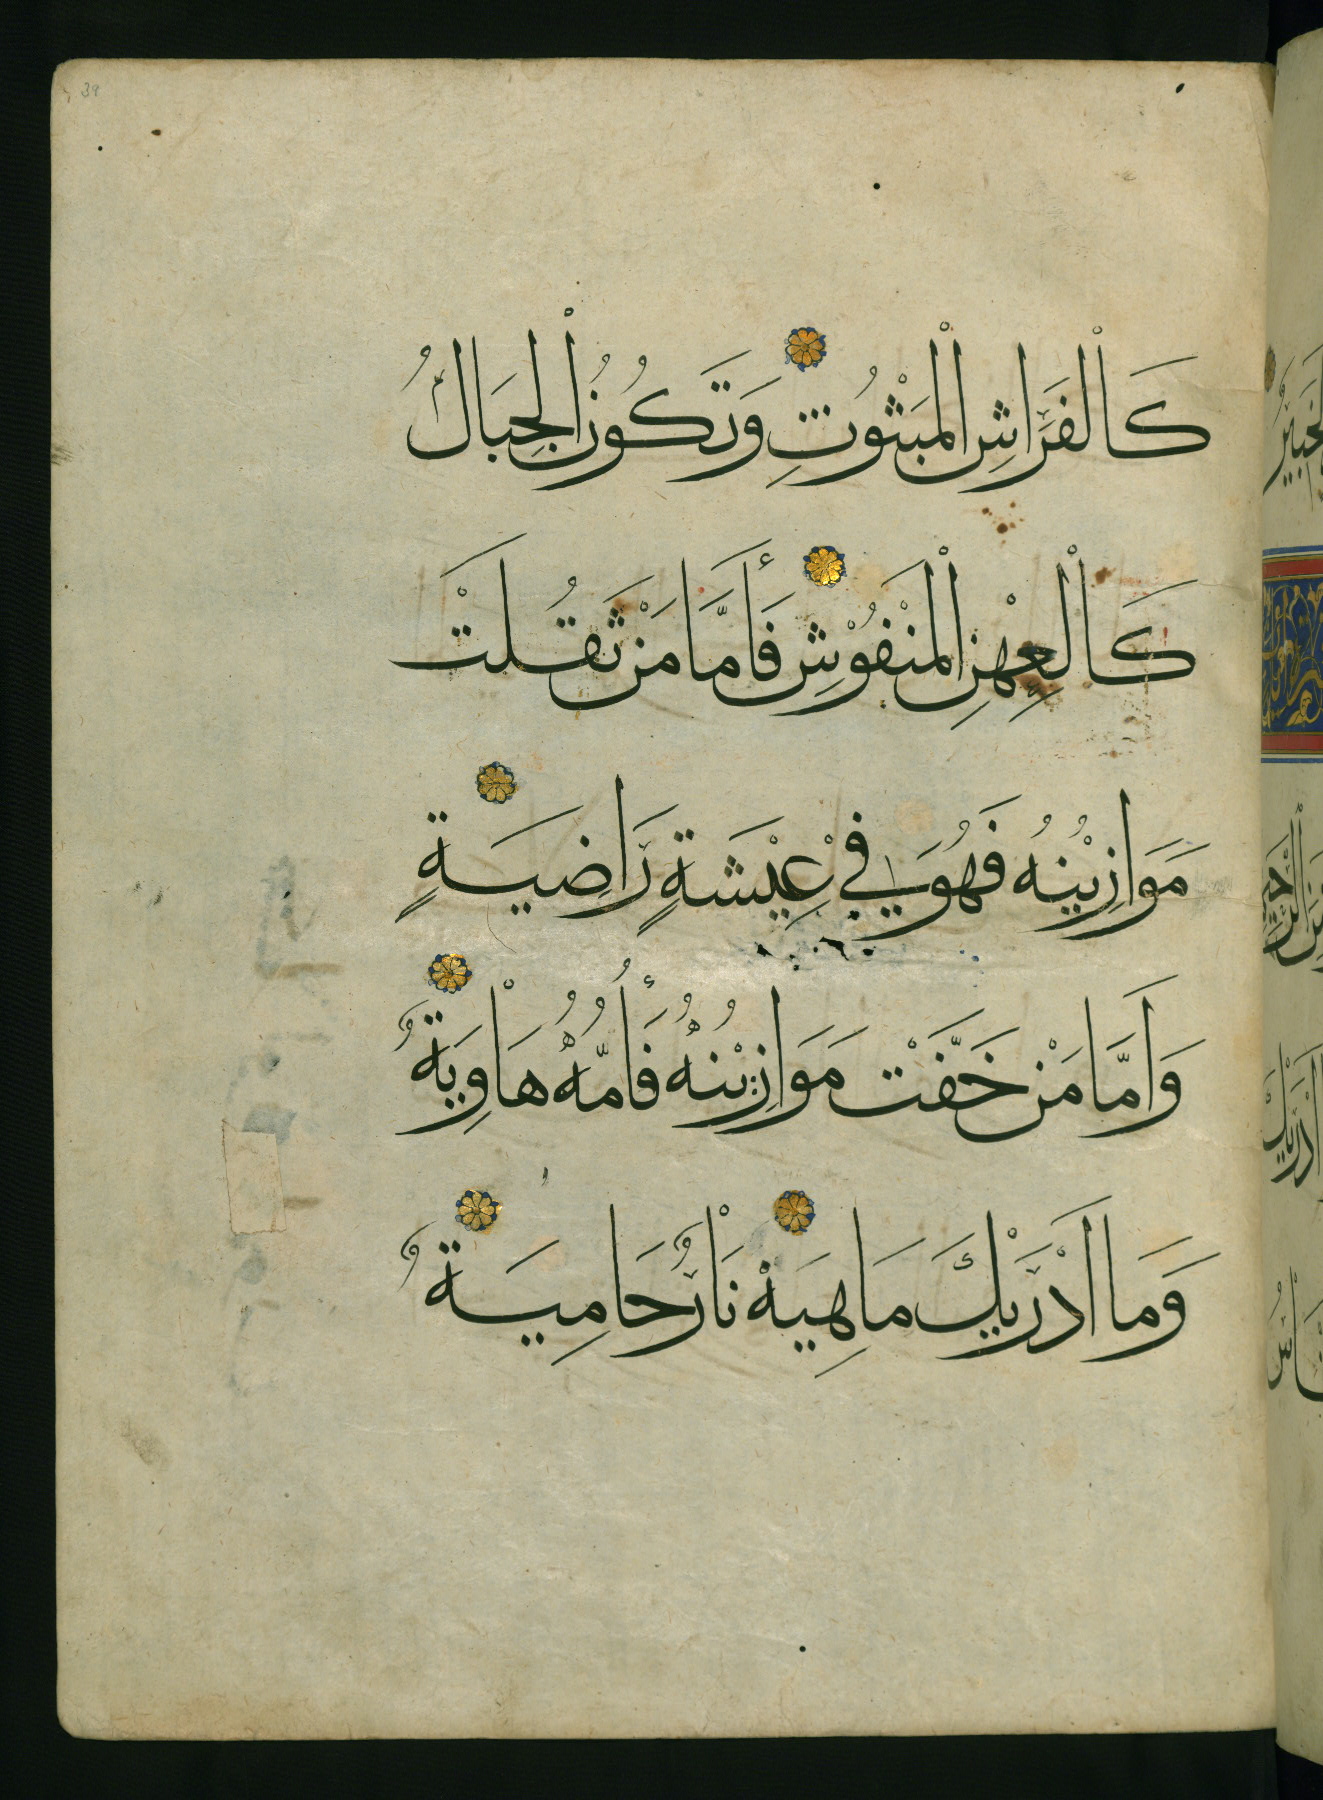 كَالْفَرَاشِ الْمَبْثُوثِ وَتَكُونُ الْجِبَالُ
كَالْعِهْنِ الْمَنْفُوشِ فَأَمَّا مَنْ ثَقُلَتْ
مَوَازِينُهُ فَهُوَ فِي عِيْشَةٍ رَاضِيَةٍ
وَاَمَّا مَنْ خَفَّتْ مَوَازِيْنُهُ فَأُمُّهُ هَاوِيَةٌ
وَمَا اَدْرَيٰكَ مَا هِيَهْ نَارٌ حَامِيَةٌ
39